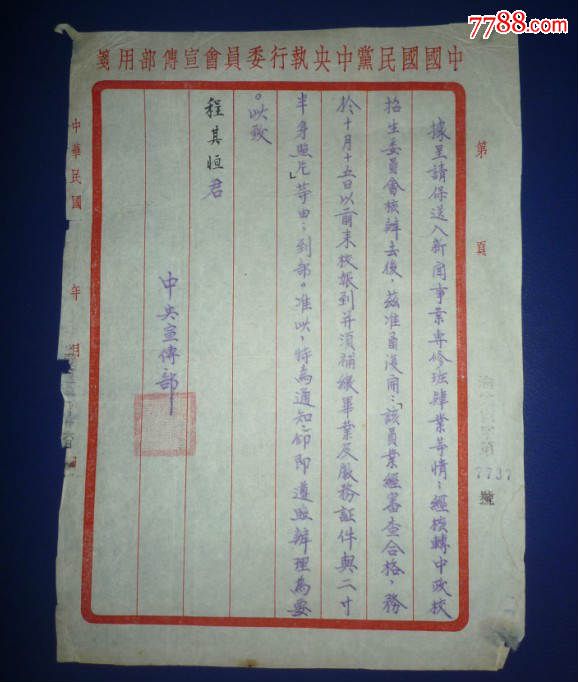 7788.com
中國國民黨中央執行委員會宣傳部用箋
第 頁
第7737號
據呈請保送入新聞事業專修班肄業等情；經核轉中政校
招生委員會核辦去後，茲准函復開：「該員業經審查合格，務
於十月十五日以前來校報到并須補繳畢業及服務証件與二寸
半身照片」等由；到部。准此，特為通知，仰即遵照辦理為要
。此致
程其恒君
中央宣傳部
中華民國 年 月